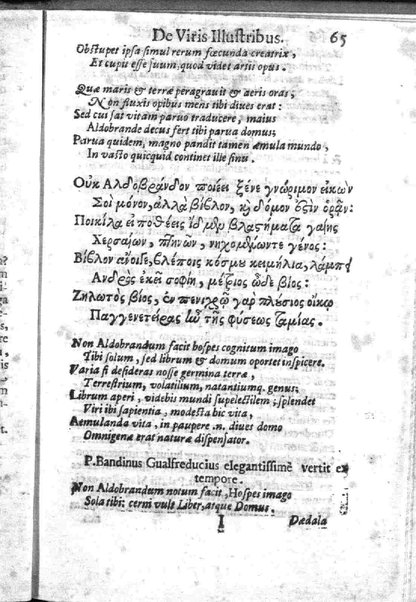 De Viris Illustribus. 65
Obstupet ipsa simul rerum fœcunda creatrix,
Et cupit esse suum, quod videt artis opus.
Quæ maris & terræ peragrauit & aeris oras;
Non fluxis opibus mens tibi diues erat:
Sed cui sat vitam paruo traducere, maius
Aldobrande decus fert tibi parua domus;
Parua quidem, magno pandit tamen æmula mundo,
In vasto quicquid continet ille sinu.
Οὐκ Αλδοβράνδον ποιέει ξένε γνώριμον εἰκὼν
Σοὶ μόνον, ἀλλὰ βίβλον, κὶ δόμον ὁρᾶν:
Ποικίλα εἰ ποθέεις βλαστήματα γαίης
Χερσαίων, πτηνῶν, γένος:
Βίβλον ἄνοιξε, βλέποις κόσμου κειμήλια,
Ανδρὸς ἐκεῖ σοφίη, μέτριος ὧδε βίος:
Ζηλωτὸς βίος, ἐν πενιχρῷ γὰρ πλούσιος οἴκῳ
Παγγενετείρας τῆς φύσεως ταμίας.
Non Aldobrandum facit hospes cognitum imago
Tibi solum, sed librum & domum oportet inspicere.
Varia si desideras nosse germina terræ,
Terrestrium, volatilium, natantiumq. genus;
Librum aperi, videbis mundi supelectilem; splendet
Viri ibi sapientia, modesta hic vita,
Aemulanda vita, in paupere .n. diuet domo
Omnigenæ erat naturæ dispensator.
P. Bandinus Gualfreducius elegantissimè vertit ex
tempore.
Non Aldobrandum notum facit, Hospes imago
Sola tibi: cerni vult Liber, atque Domus.
I Dædala